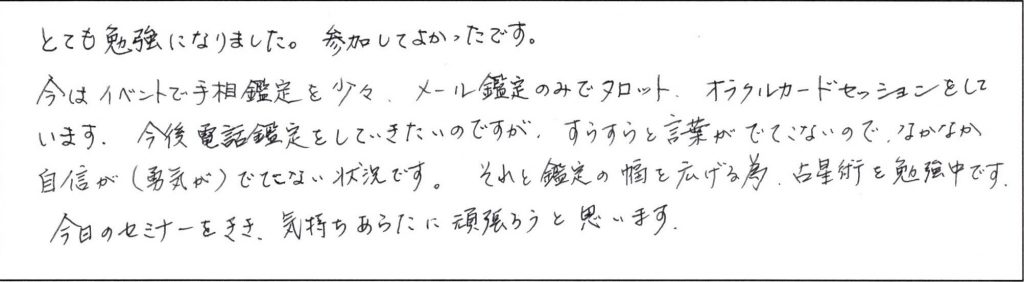 とても勉強になりました。参加してよかったです。
今はイベントで手相鑑定を少々、メール鑑定のみでタロット、オラクルカードセッションをして
います。今後電話鑑定をしていきたいのですが、すらすらと言葉がでてこないので、なかなか
自信が(勇気が)でてこない状況です。それと鑑定の幅を広げる為、占星術を勉強中です。
今日のセミナーをきき、気持ちあらたに頑張ろうと思います。